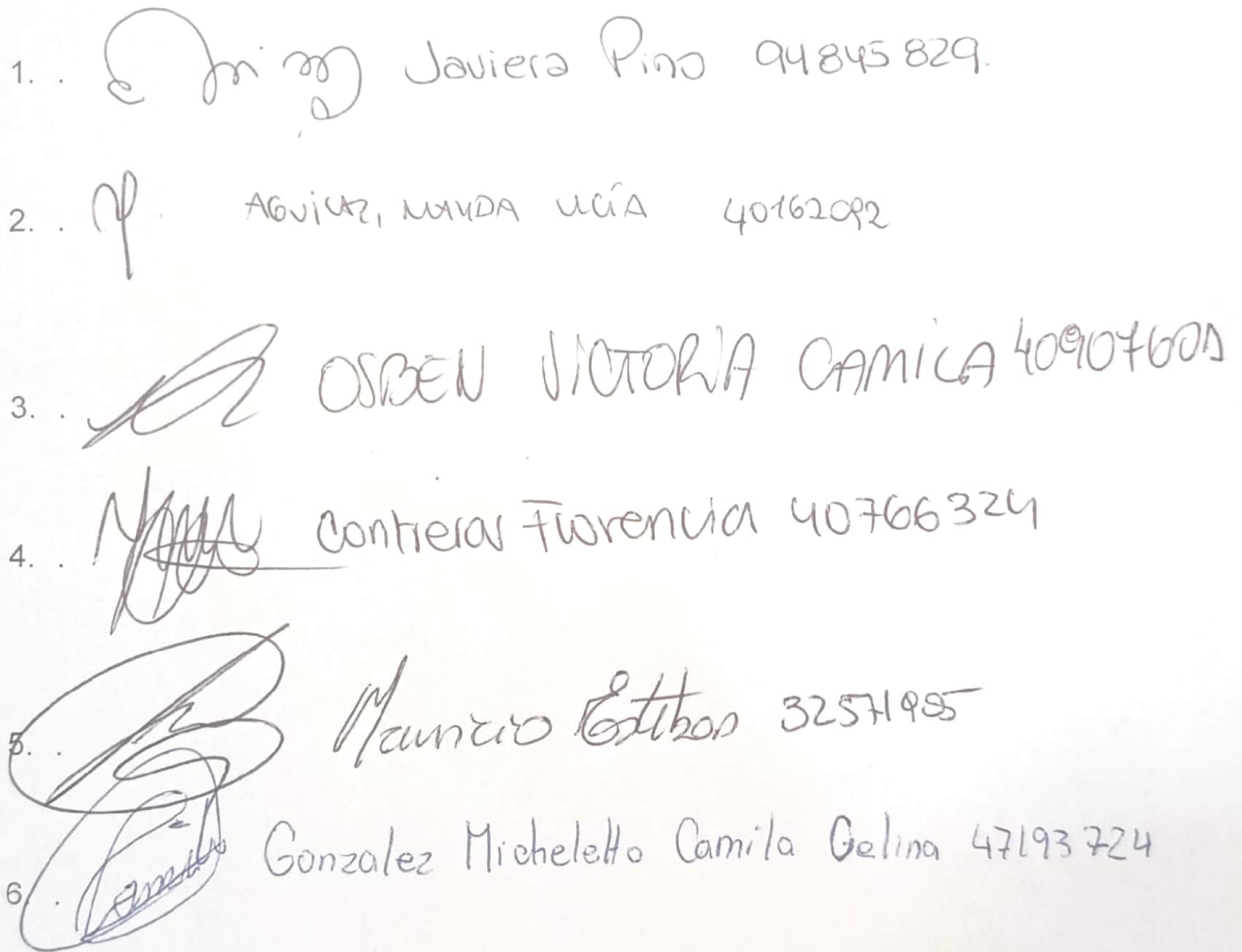 1. . Javiera Pino 94845829.
2. . AGUILAR, LUCÍA 40162092
3. . OSBEN VICTORIA CAMILA
4. . Contreras Florencia 40766324
5. . Mauricio Esteban
6. . Gonzalez Micheletto Camila Celina 47193724